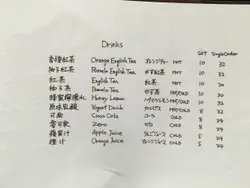 Drinks
Set Single Order
香檸紅茶 Orange English Tea オレンジティー HOT 10 32
柚子紅茶 Pomelo English Tea ゆず紅茶 HOT 10 32
紅茶 English Tea 紅茶 HOT 10 30
柚子茶 Pomelo Tea ゆず茶 HOT/COLD 10 30
蜂蜜檸檬水 Honey Lemon ハチミツレモン HOT/COLD 10 30
原味乳酸 Yogurt Drink カルピス HOT/COLD 8 32
可樂 Coca Cola コーラ COLD 8 29
零可樂 Zero ゼロ COLD 8 29
蘋果汁 Apple Juice COLD 5 29
橙汁 Orange Juice オレンジジュース COLD 5 29